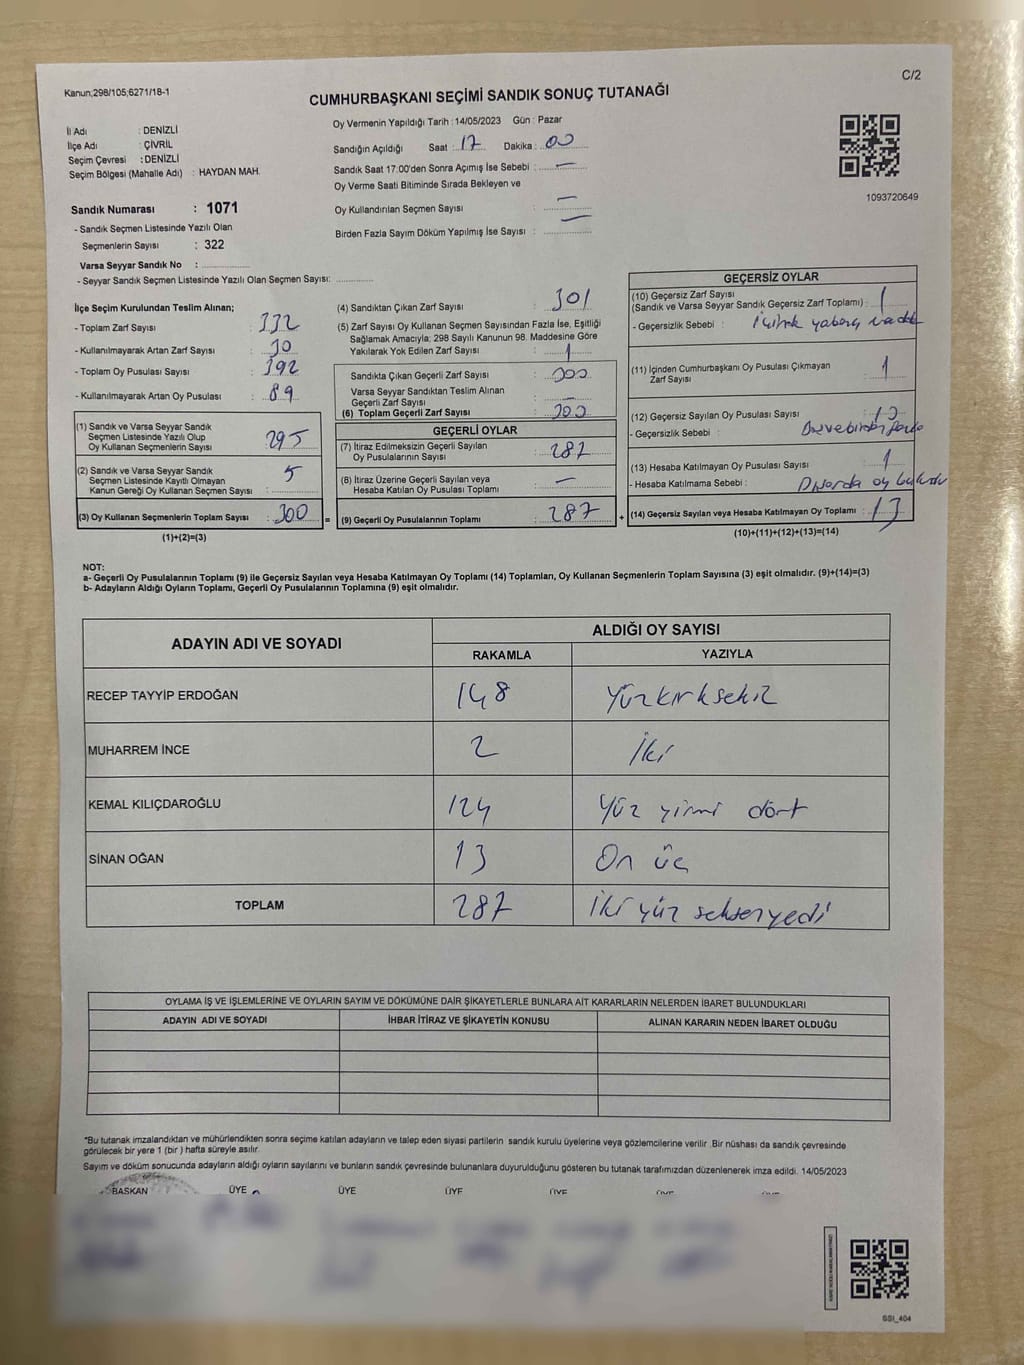 Kanun;298/105;6271/18-1
C/2
CUMHURBAŞKANI SEÇİMİ SANDIK SONUÇ TUTANAĞI
İl Adı : DENİZLİ
İlçe Adı : ÇİVRİL
Seçim Çevresi : DENİZLİ
Seçim Bölgesi (Mahalle Adı) : HAYDAN MAH.
Sandık Numarası : 1071
- Sandık Seçmen Listesinde Yazılı Olan
Seçmenlerin Sayısı : 322
Varsa Seyyar Sandık No :
- Seyyar Sandık Seçmen Listesinde Yazılı Olan Seçmen Sayısı:
Oy Vermenin Yapıldığı Tarih : 14/05/2023 Gün : Pazar
Sandığın Açıldığı Saat : 17 Dakika : 00
Sandık Saat 17:00'den Sonra Açımış İse Sebebi : —
Oy Verme Saati Bitiminde Sırada Bekleyen ve
Oy Kullandırılan Seçmen Sayısı : —
Birden Fazla Sayım Döküm Yapılmış İse Sayısı : —
1093720649
İlçe Seçim Kurulundan Teslim Alınan;
- Toplam Zarf Sayısı : 332
- Kullanılmayarak Artan Zarf Sayısı : 30
- Toplam Oy Pusulası Sayısı : 392
- Kullanılmayarak Artan Oy Pusulası : 89
(1) Sandık ve Varsa Seyyar Sandık
Seçmen Listesinde Yazılı Olup
Oy Kullanan Seçmenlerin Sayısı : 295
(2) Sandık ve Varsa Seyyar Sandık
Seçmen Listesinde Kayıtlı Olmayan
Kanun Gereği Oy Kullanan Seçmen Sayısı : 5
(3) Oy Kullanan Seçmenlerin Toplam Sayısı : 300 =
(1)+(2)=(3)
(4) Sandıktan Çıkan Zarf Sayısı : 301
(5) Zarf Sayısı Oy Kullanan Seçmen Sayısından Fazla İse, Eşitliği
Sağlamak Amacıyla; 298 Sayılı Kanunun 98. Maddesine Göre
Yakılarak Yok Edilen Zarf Sayısı : 1
Sandıkta Çıkan Geçerli Zarf Sayısı : 300
Varsa Seyyar Sandıktan Teslim Alınan
Geçerli Zarf Sayısı : —
(6) Toplam Geçerli Zarf Sayısı : 300
GEÇERLİ OYLAR
(7) İtiraz Edilmeksizin Geçerli Sayılan
Oy Pusulalarının Sayısı : 287
(8) İtiraz Üzerine Geçerli Sayılan veya
Hesaba Katılan Oy Pusulası Toplamı : —
(9) Geçerli Oy Pusulalarının Toplamı : 287 +
GEÇERSİZ OYLAR
(10) Geçersiz Zarf Sayısı
(Sandık ve Varsa Seyyar Sandık Geçersiz Zarf Toplamı) : 1
- Geçersizlik Sebebi :
(11) İçinden Cumhurbaşkanı Oy Pusulası Çıkmayan
Zarf Sayısı : 1
(12) Geçersiz Sayılan Oy Pusulası Sayısı :
- Geçersizlik Sebebi :
(13) Hesaba Katılmayan Oy Pusulası Sayısı : 1
- Hesaba Katılmama Sebebi :
(14) Geçersiz Sayılan veya Hesaba Katılmayan Oy Toplamı : 13
(10)+(11)+(12)+(13)=(14)
NOT:
a- Geçerli Oy Pusulalarının Toplamı (9) ile Geçersiz Sayılan veya Hesaba Katılmayan Oy Toplamı (14) Toplamları, Oy Kullanan Seçmenlerin Toplam Sayısına (3) eşit olmalıdır. (9)+(14)=(3)
b- Adayların Aldığı Oyların Toplamı, Geçerli Oy Pusulalarının Toplamına (9) eşit olmalıdır.
ADAYIN ADI VE SOYADI
ALDIĞI OY SAYISI
RAKAMLA YAZIYLA
RECEP TAYYİP ERDOĞAN 148 Yüzkırksekiz
MUHARREM İNCE 2 İki
KEMAL KILIÇDAROĞLU 124 Yüz yirmi dört
SİNAN OĞAN 13 On üç
TOPLAM 287 İki yüz seksenyedi
OYLAMA İŞ VE İŞLEMLERİNE VE OYLARIN SAYIM VE DÖKÜMÜNE DAİR ŞİKAYETLERLE BUNLARA AİT KARARLARIN NELERDEN İBARET BULUNDUKLARI
ADAYIN ADI VE SOYADI İHBAR İTİRAZ VE ŞİKAYETİN KONUSU ALINAN KARARIN NEDEN İBARET OLDUĞU
*Bu tutanak imzalandıktan ve mühürlendikten sonra seçime katılan adayların ve talep eden siyasi partilerin sandık kurulu üyelerine veya gözlemcilerine verilir .Bir nüshası da sandık çevresinde
görülecek bir yere 1 (bir ) hafta süreyle asılır.
Sayım ve döküm sonucunda adayların aldığı oyların sayılarını ve bunların sandık çevresinde bulunanlara duyurulduğunu gösteren bu tutanak tarafımızdan düzenlenerek imza edildi. 14/05/2023
BAŞKAN ÜYE ÜYE ÜYE ÜYE
SSI_404